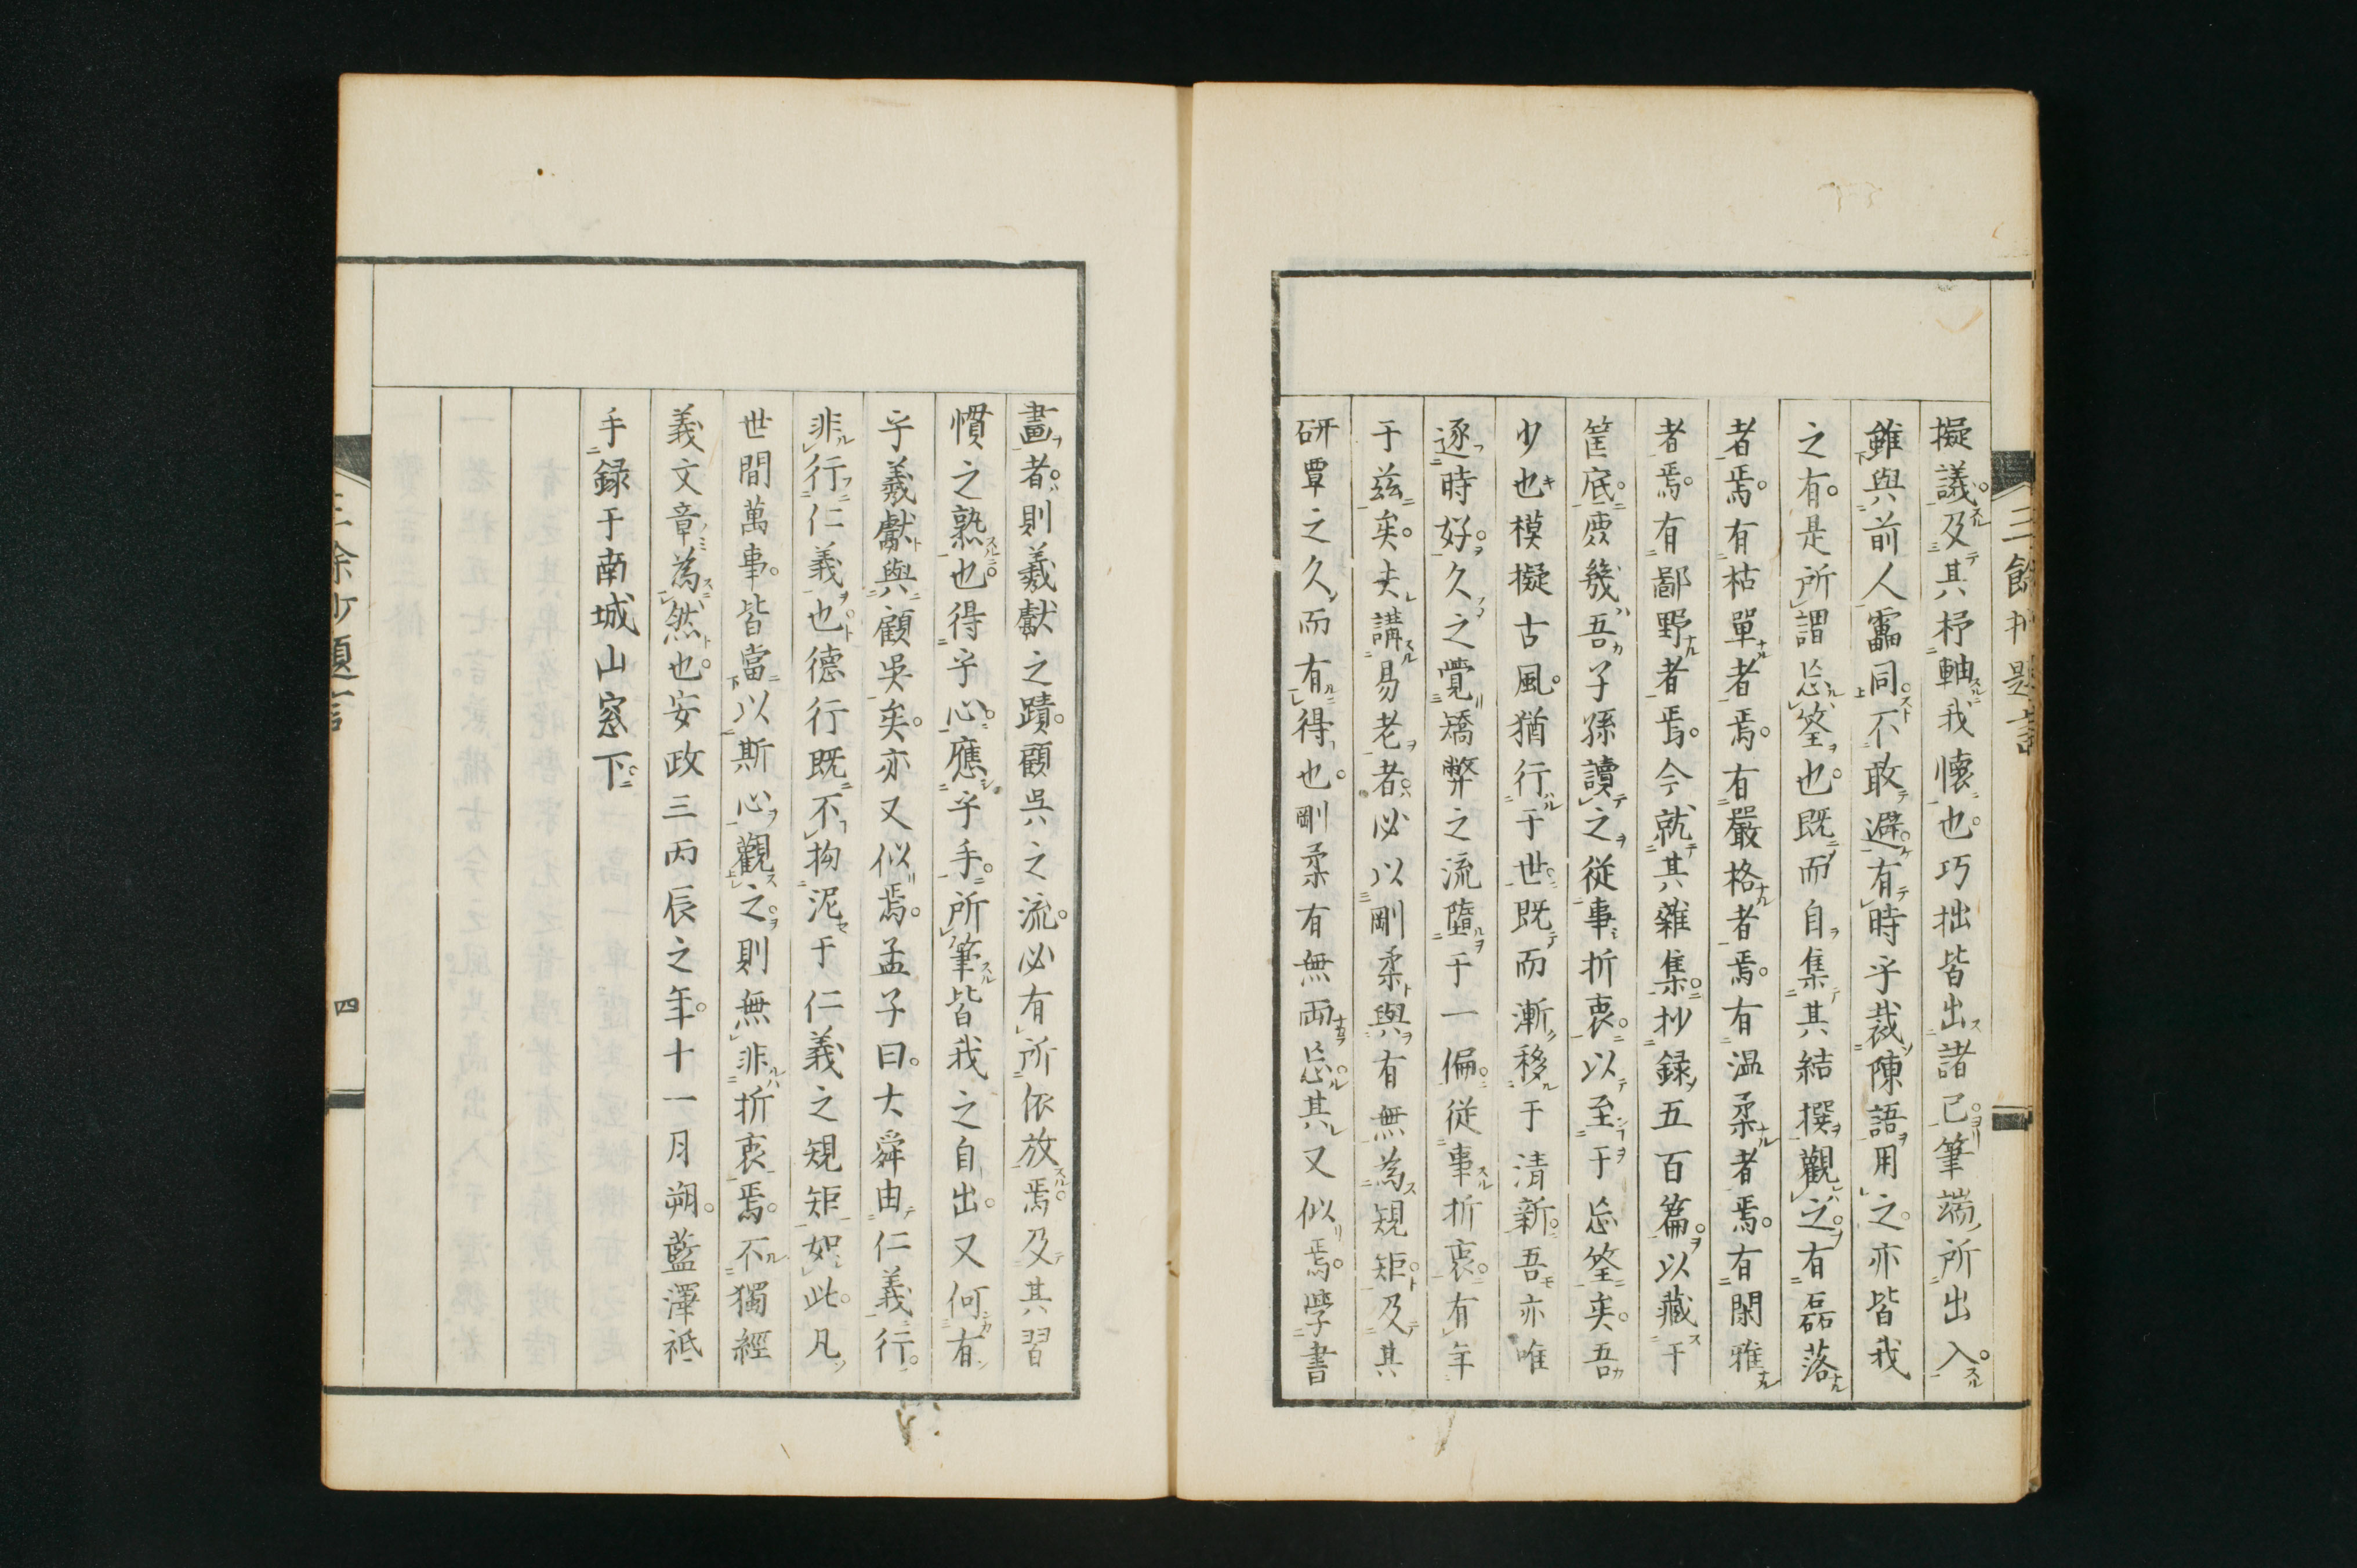 三餘抄題言
擬議。及其杼軸我懷也。巧拙皆出諸己。筆端所出入。
雖與前人靁同。不敢避。有時乎裁陳語用之。亦皆我
之有。是所謂忘筌也。既而自集其結撰觀之。有磊落
者焉。有枯單者焉。有嚴格者焉。有温柔者焉。有閑雅
者焉。有鄙野者焉。今就其雜集。抄録五百篇。以藏于
筐底。庶幾吾子孫讀之。從事折衷。以至于忘筌矣。吾
少也模擬古風。猶行于世。既而漸移于清新。吾亦唯
逐時好。久之覺矯弊之流墮于一偏。從事折衷。有年
于茲矣。夫講易老者。必以剛柔與有無為規矩。及其
研覃之久。而有得也。剛柔有無両忘。其又似焉。學書
畫者。則羲獻之蹟。顧吳之流。必有所依放焉。及其習
慣之熟也。得乎心。應乎手。所筆皆我之自出。又何有
乎羲獻與顧吳矣。亦又似焉。孟子曰。大舜由仁義行。
非行仁義也。德行既不拘泥于仁義之規矩如此。凡
世間萬事。皆當以斯心觀之。則無非折衷焉。不獨經
義文章為然也。安政三丙辰之年。十一月朔。藍澤祗
手録于南城山窓下。
三余抄題言
四